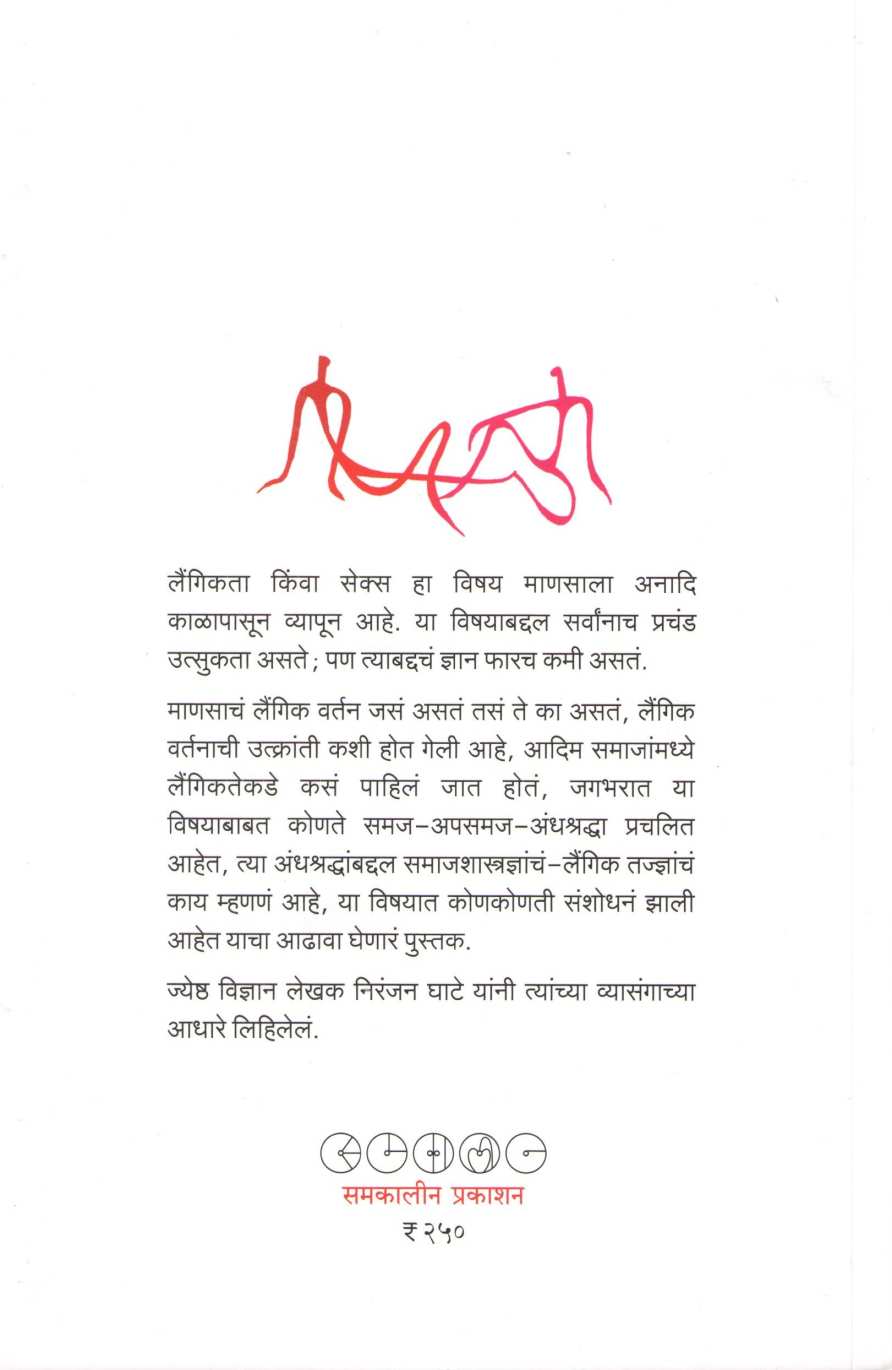 लैंगिकता किंवा सेक्स हा विषय माणसाला अनादि
काळापासून व्यापून आहे. या विषयाबद्दल सर्वांनाच प्रचंड
उत्सुकता असते ; पण त्याबद्दचं ज्ञान फारच कमी असतं.
माणसाचं लैंगिक वर्तन जसं असतं तसं ते का असतं, लैंगिक
वर्तनाची उत्क्रांती कशी होत गेली आहे, आदिम समाजांमध्ये
लैंगिकतेकडे कसं पाहिलं जात होतं, जगभरात या
विषयाबाबत कोणते समज–अपसमज–अंधश्रद्धा प्रचलित
आहेत, त्या अंधश्रद्धांबद्दल समाजशास्त्रज्ञांचं–लैंगिक तज्ज्ञांचं
काय म्हणणं आहे, या विषयात कोणकोणती संशोधनं झाली
आहेत याचा आढावा घेणारं पुस्तक.
ज्येष्ठ विज्ञान लेखक निरंजन घाटे यांनी त्यांच्या व्यासंगाच्या
आधारे लिहिलेलं.
समकालीन प्रकाशन
₹ २५०